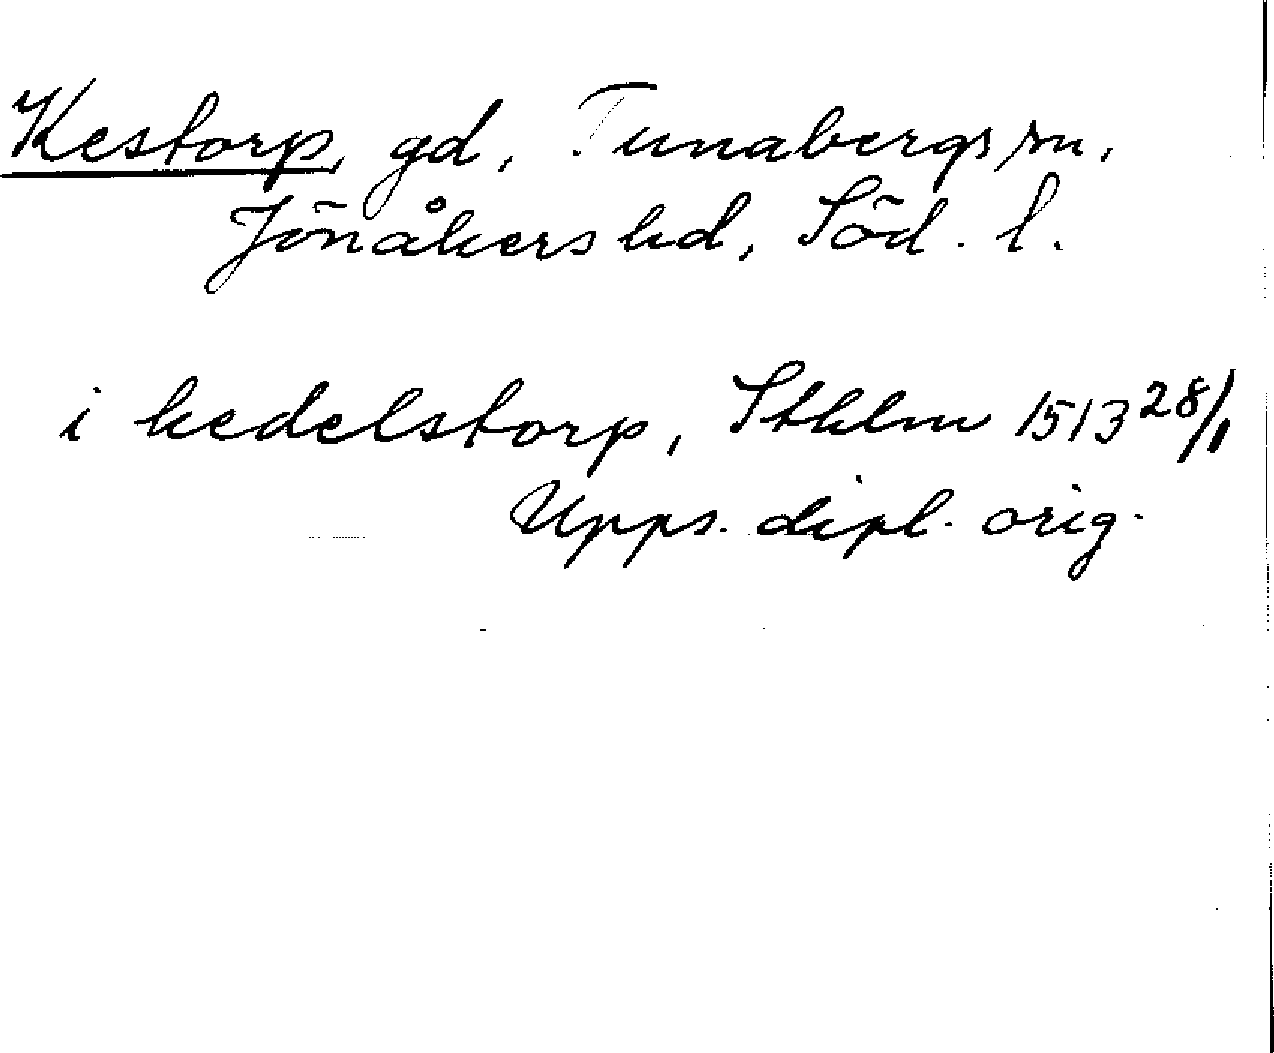 Kestorp, gd, Tunabergs sn,
Jönåkers hd, Söd. l.
i kedelstorp, Sthlm 1513 28/1
Upps. dipl. orig.